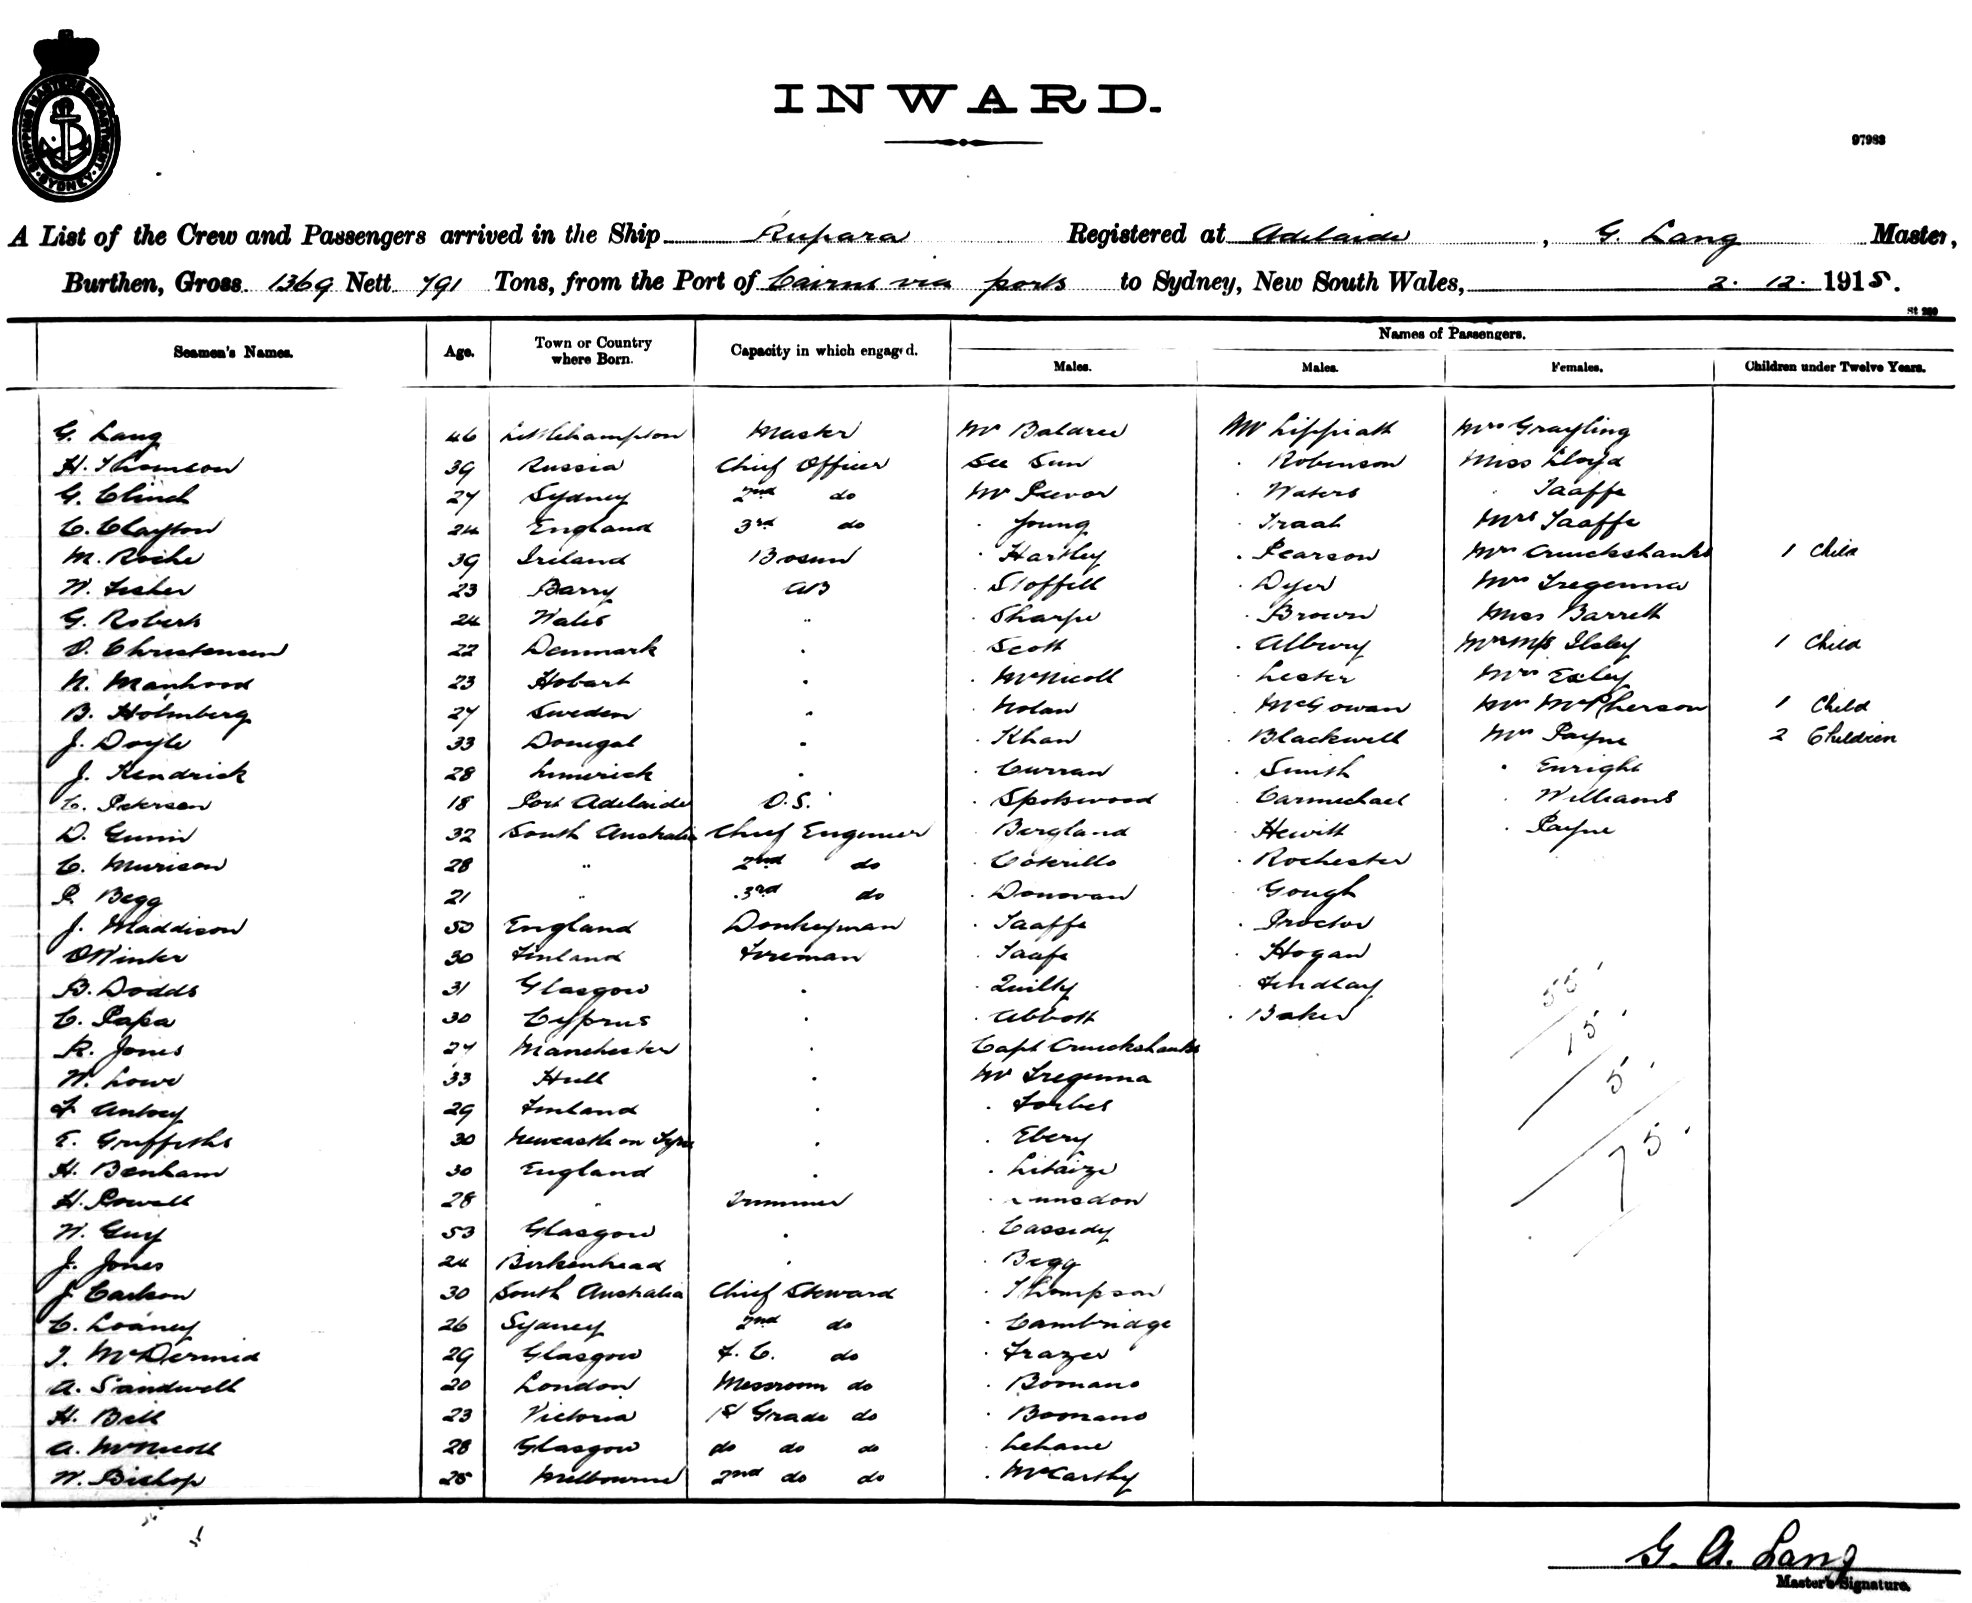 SHIPPING MASTER'S DEPARTMENT · SYDNEY ·
INWARD.
97983
A List of the Crew and Passengers arrived in the Ship Rupara Registered at Adelaide, G. Lang Master,
Burthen, Gross 1369 Nett 791 Tons, from the Port of Cairns via ports to Sydney, New South Wales, 2. 12. 1915.
St 289
Names of Passengers.
Seamen's Names. Age. Town or Country where Born. Capacity in which engaged. Males. Males. Females. Children under Twelve Years.
G. Lang 46 Littlehampton Master Mr Baldree Mr Lippiath Mrs Grayling
H. Thomson 39 Russia Chief Officer See Sun . Robinson Miss Lloyd
G. Clinch 27 Sydney 2nd do Mr Trevor . Waters . Taaffe
C. Clayton 24 England 3rd do . Young . Traah Mrs Taaffe
M. Roche 39 Ireland Bosun . Hartley . Pearson Mrs Cruickshanks 1 Child
W. Fisher 23 Barry AB . Stoffell . Dyer Mrs Tregenna
G. Roberts 24 Wales " . Sharpe . Brown Miss Barrett
O. Christensen 22 Denmark . . Scott . Albury Mrs Ilsley 1 Child
N. Manhood 23 Hobart . . McNicoll . Lester Mrs Exley
B. Holmberg 27 Sweden . . Nolan . McGowan Mrs McPherson 1 Child
J. Doyle 33 Donegal . . Khan . Blackwell Mrs Payne 2 Children
J. Kendrick 28 Limerick . . Curran . Smith . Enright
C. Petersen 18 Port Adelaide O.S. . Spotswood . Carmichael . Williams
D. Gunn 32 South Australia Chief Engineer . Bergland . Hewitt . Payne
C. Murison 28 " 2nd do . Coterillo . Rochester
P. Begg 21 " 3rd do . Donovan . Gough
J. Maddison 50 England Donkeyman . Taaffe . Proctor
O Winter 30 Finland Fireman . Taafe . Hogan
B. Dodds 31 Glasgow . . Quilty . Findlay
C. Papa 30 Cyprus . . Abbott . Baker
R. Jones 27 Manchester . Capt Cruickshanks
W. Lowe 33 Hull . Mr Tregenna
F 29 Finland . . Forbes
E. Griffiths 30 Newcastle on Tyne . . Ebery
H. Benham 30 England . . Litaize
H. Powell 28 " Trimmer
W. Guy 53 Glasgow . . Cassidy
J. Jones 24 Birkenhead . . Begg
J Carlson 30 South Australia Chief Steward . Thompson
C. Looney 26 Sydney 2nd do . Cambridge
J. McDermid 29 Glasgow F. C. do . Frazer
A. Sandwell 20 London Messroom do . Boomano
H. Bell 23 Victoria 1st Grade do . Boomano
A. McNicoll 28 Glasgow do do do . Lehane
W. Bishop 25 Melbourne 2nd do do . McCarthy
55
15
5
75
G. A. Lang
Master's Signature.